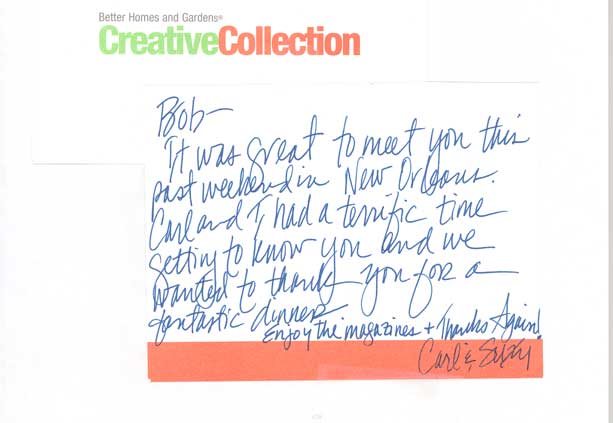 Better Homes and Gardens®
CreativeCollection
Bob-
It was great to meet you this
past weekend in New Orleans.
Carl and I had a terrific time
getting to know you and we
wanted to thank you for a
fantastic dinner
Enjoy the magazines + Thanks Again!
Carl & Suzy